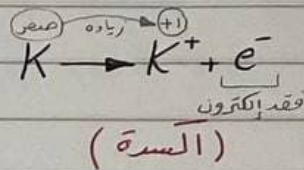 صفر زيادة +1
K → K⁺ + e⁻
فقد إلكترون
(أكسدة)